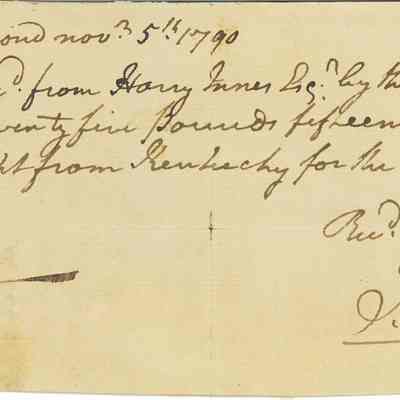 ond novr. 5th 1790
d. from Harry Innes Esqr. by the
wenty five Pounds fifteen
ht from Kentucky for the
Recd.